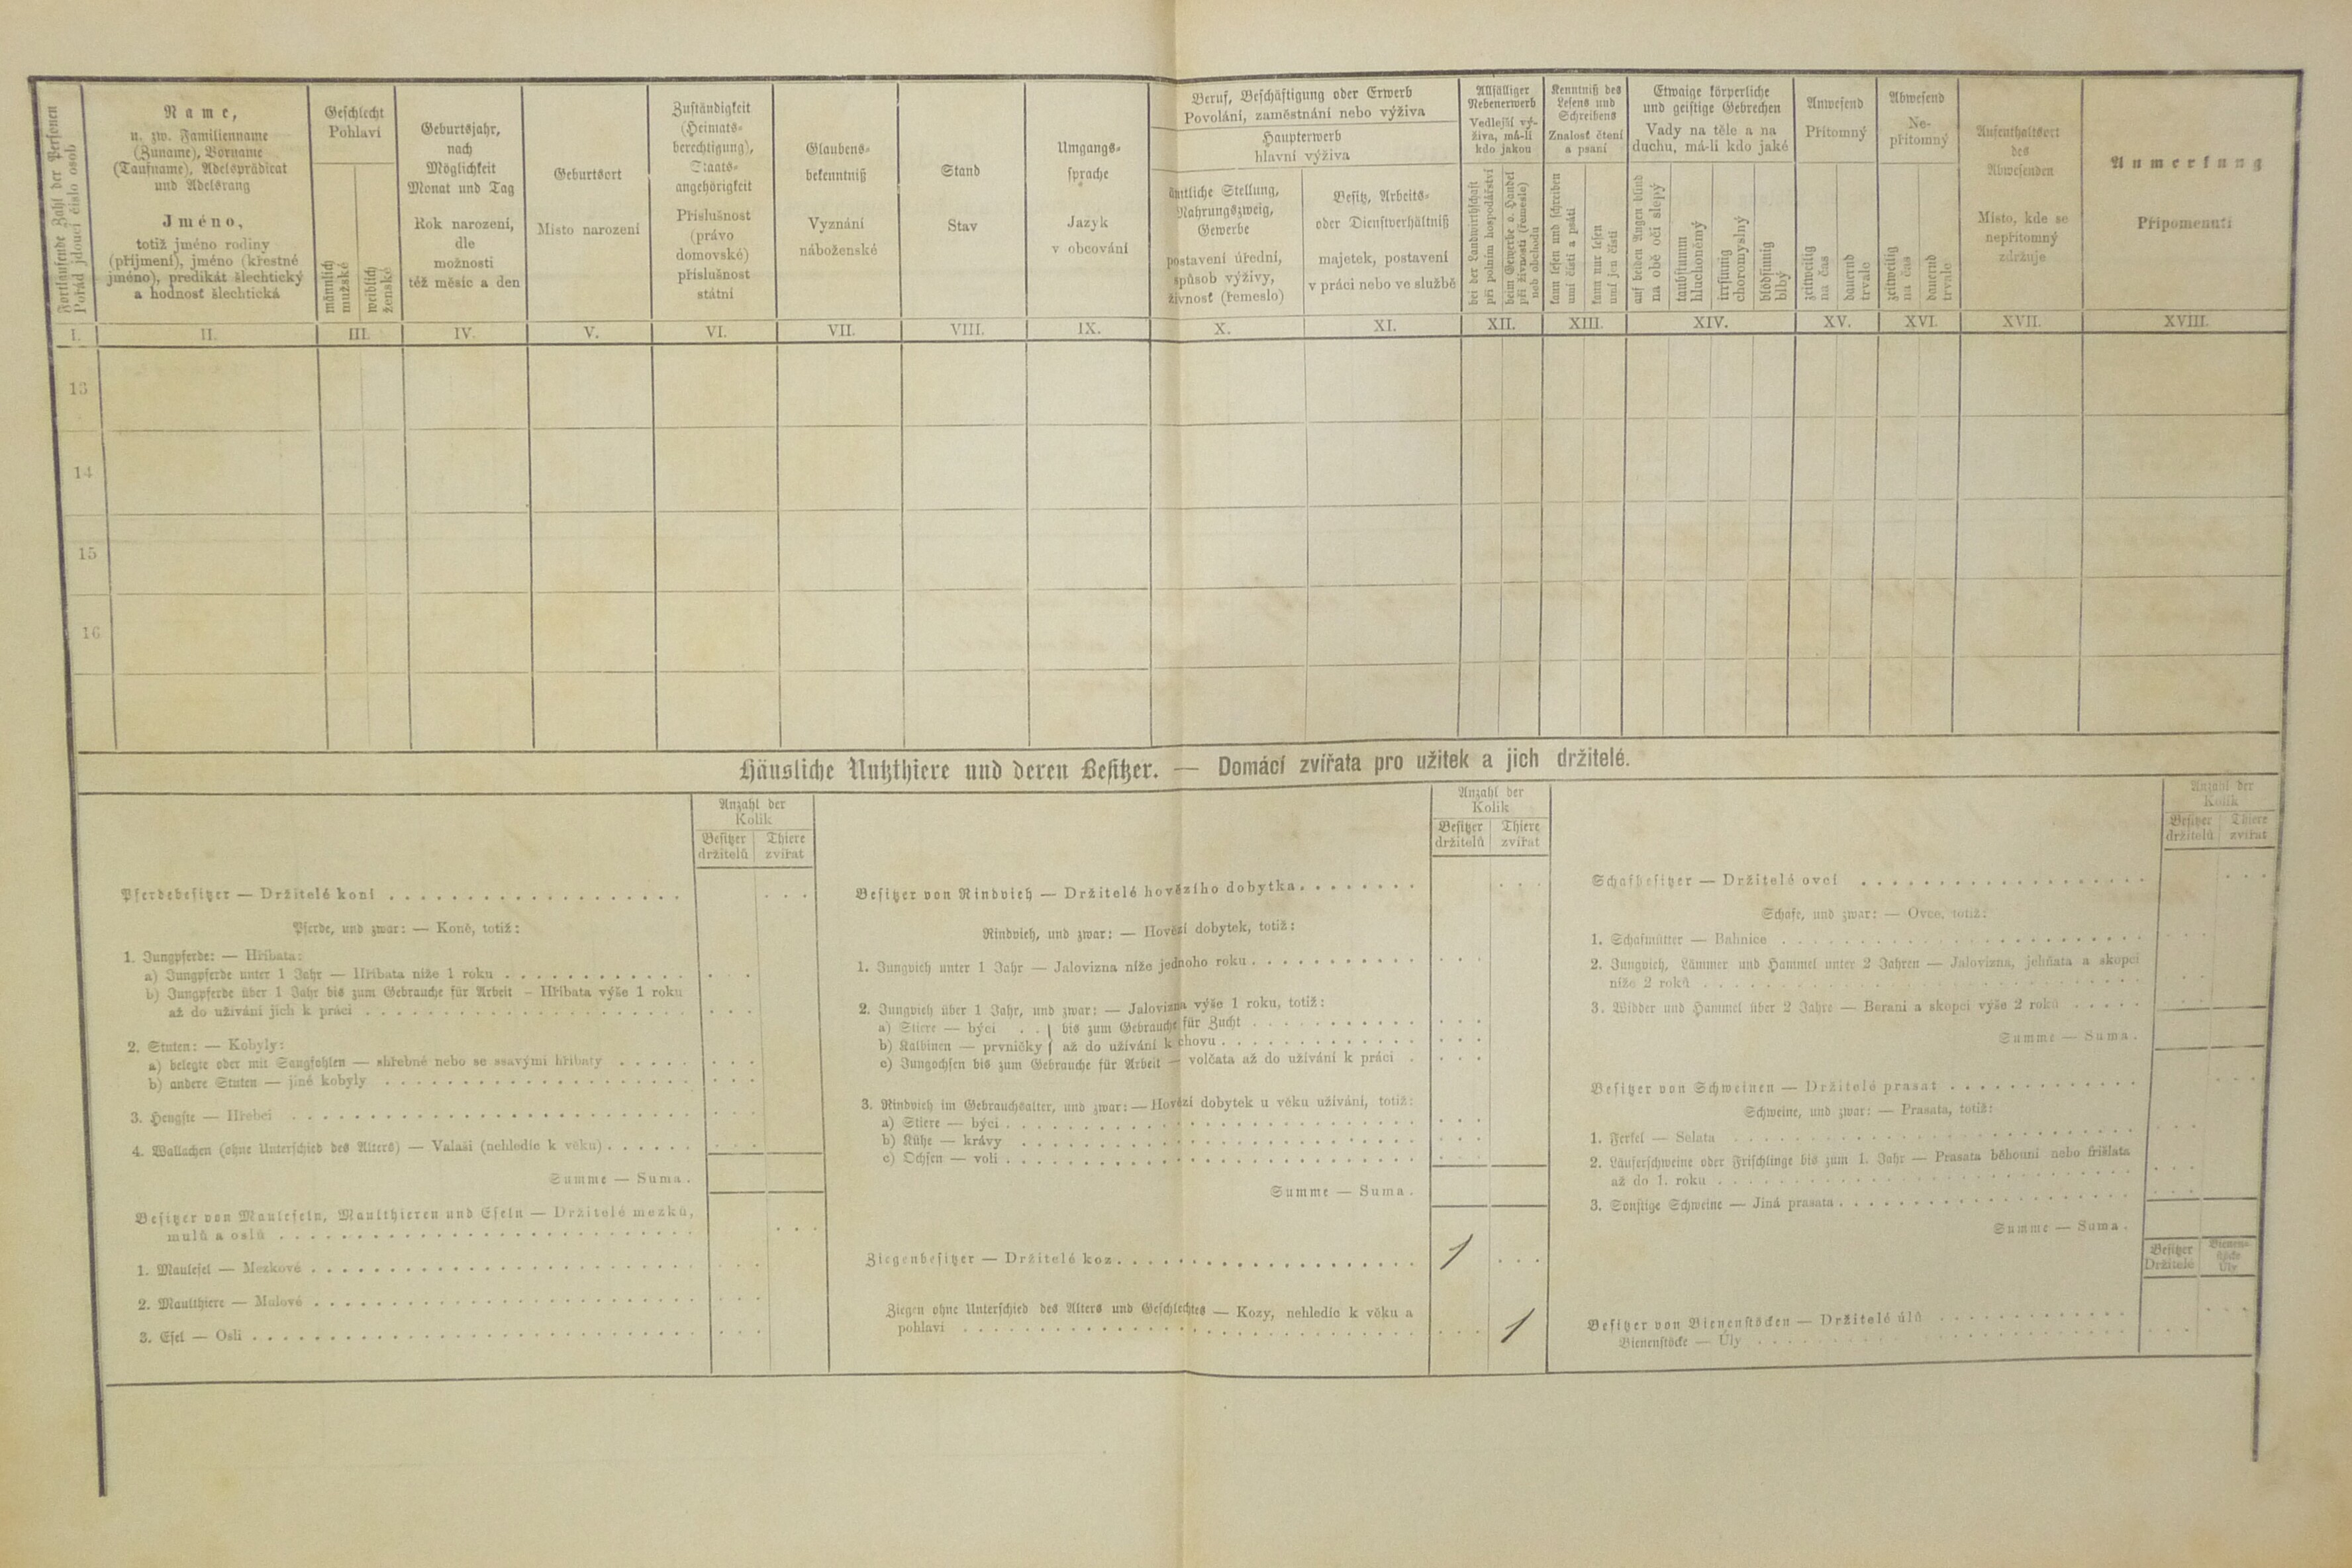 Fortlaufende Zahl der Personen
Pořád jdoucí číslo osob
Name,
u. zw. Familienname
(Zuname), Vorname
(Taufname), Adelsprädicat
und Adelsrang
Jméno,
totiž jméno rodiny
(příjmení), jméno (křestné
jméno), predikát šlechtický
a hodnosť šlechtická
Geschlecht
Pohlaví
männlich
mužské
weiblich
ženské
Geburtsjahr,
nach
Möglichkeit
Monat und Tag
Rok narození,
dle
možnosti
též měsíc a den
Geburtsort
Místo narození
Zuständigkeit
(Heimats-
berechtigung),
Staats-
angehörigkeit
Příslušnost
(právo
domovské)
příslušnost
státní
Glaubens-
bekenntniß
Vyznání
náboženské
Stand
Stav
Umgangs-
sprache
Jazyk
v obcování
Beruf, Beschäftigung oder Erwerb
Povolání, zaměstnání nebo výživa
Haupterwerb
hlavní výživa
amtliche Stellung,
Nahrungszweig,
Gewerbe
postavení úřední,
spůsob výživy,
živnosť (řemeslo)
Besitz, Arbeits-
oder Dienstverhältniß
majetek, postavení
v práci nebo ve službě
Allfälliger
Nebenerwerb
Vedlejší vý-
živa, má-li
kdo jakou
bei der Landwirthschaft
při polním hospodářství
beim Gewerbe o. Handel
při živnosti (řemesle)
neb obchodu
Kenntniß des
Lesens und
Schreibens
Znalosť čtení
a psaní
kann lesen und schreiben
umí čísti a psáti
kann nur lesen
umí jen čísti
Etwaige körperliche
und geistige Gebrechen
Vady na těle a na
duchu, má-li kdo jaké
auf beiden Augen blind
na obě oči slepý
taubstumm
hluchoněmý
irrsinnig
choromyslný
blödsinnig
blbý
Anwesend
Přítomný
zeitweilig
na čas
dauernd
trvale
Abwesend
Ne-
přítomný
zeitweilig
na čas
dauernd
trvale
Aufenthaltsort
des
Abwesenden
Místo, kde se
nepřítomný
zdržuje
Anmerkung
Připomenutí
I. II. III. IV. V. VI. VII. VIII. IX. X. XI. XII. XIII. XIV. XV. XVI. XVII. XVIII.
13
14
15
16
Häusliche Nutzthiere und deren Besitzer. — Domácí zvířata pro užitek a jich držitelé.
Anzahl der
Kolik
Besitzer Thiere
držitelů zvířat
Pferdebesitzer — Držitelé koní
Pferde, und zwar: — Koně, totiž:
1. Jungpferde: — Hříbata:
a) Jungpferde unter 1 Jahr — Hříbata níže 1 roku
b) Jungpferde über 1 Jahr bis zum Gebrauche für Arbeit — Hříbata výše 1 roku
až do užívání jich k práci
2. Stuten: — Kobyly:
a) belegte oder mit Saugfohlen — shřebné nebo se ssavými hříbaty
b) andere Stuten — jiné kobyly
3. Hengste — Hřebci
4. Wallachen (ohne Unterschied des Alters) — Valaši (nehledíc k věku)
Summe — Suma.
Besitzer von Mauleseln, Maulthieren und Eseln — Držitelé mezků,
mulů a oslů
1. Maulesel — Mezkové
2. Maulthiere — Mulové
3. Esel — Osli
Anzahl der
Kolik
Besitzer Thiere
držitelů zvířat
Besitzer von Rindvieh — Držitelé hovězího dobytka
Rindvieh, und zwar: — Hovězí dobytek, totiž:
1. Jungvieh unter 1 Jahr — Jalovizna níže jednoho roku
2. Jungvieh über 1 Jahr, und zwar: — Jalovizna výše 1 roku, totiž:
a) Stiere — býci . . } bis zum Gebrauche für Zucht
b) Kalbinen — prvničky } až do užívání k chovu
c) Jungochsen bis zum Gebrauche für Arbeit — volčata až do užívání k práci
3. Rindvieh im Gebrauchsalter, und zwar: — Hovězí dobytek u věku užívání, totiž:
a) Stiere — býci
b) Kühe — krávy
c) Ochsen — voli
Summe — Suma.
Ziegenbesitzer — Držitelé koz 1
Ziegen ohne Unterschied des Alters und Geschlechtes — Kozy, nehledíc k věku a
pohlaví 1
Anzahl der
Kolik
Besitzer Thiere
držitelů zvířat
Schafbesitzer — Držitelé ovcí
Schafe, und zwar: — Ovce, totiž:
1. Schafmütter — Bahnice
2. Jungvieh, Lämmer und Hammel unter 2 Jahren — Jalovizna, jehňata a skopci
níže 2 roků
3. Widder und Hammel über 2 Jahre — Berani a skopci výše 2 roků
Summe — Suma.
Besitzer von Schweinen — Držitelé prasat
Schweine, und zwar: — Prasata, totiž:
1. Ferkel — Selata
2. Läuferschweine oder Frischlinge bis zum 1. Jahr — Prasata běhouni nebo frišlata
až do 1. roku
3. Sonstige Schweine — Jiná prasata
Summe — Suma.
Besitzer
Držitelé
Bienen-
stöcke
Úly
Besitzer von Bienenstöcken — Držitelé úlů
Bienenstöcke — Úly